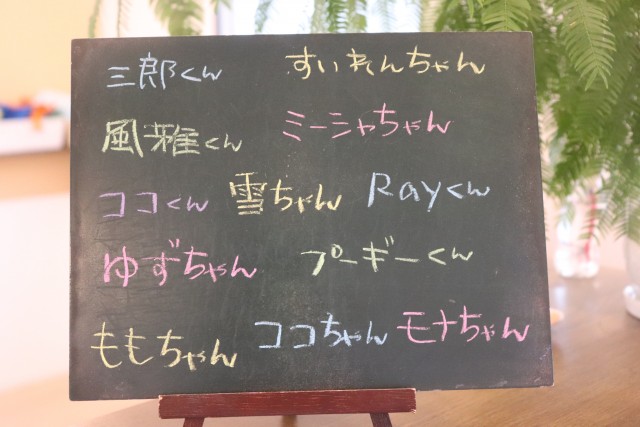 三郎くん すいれんちゃん
風雅くん ミーシャちゃん
ココくん 雪ちゃん Rayくん
ゆずちゃん プーギーくん
ももちゃん ココちゃん モナちゃん